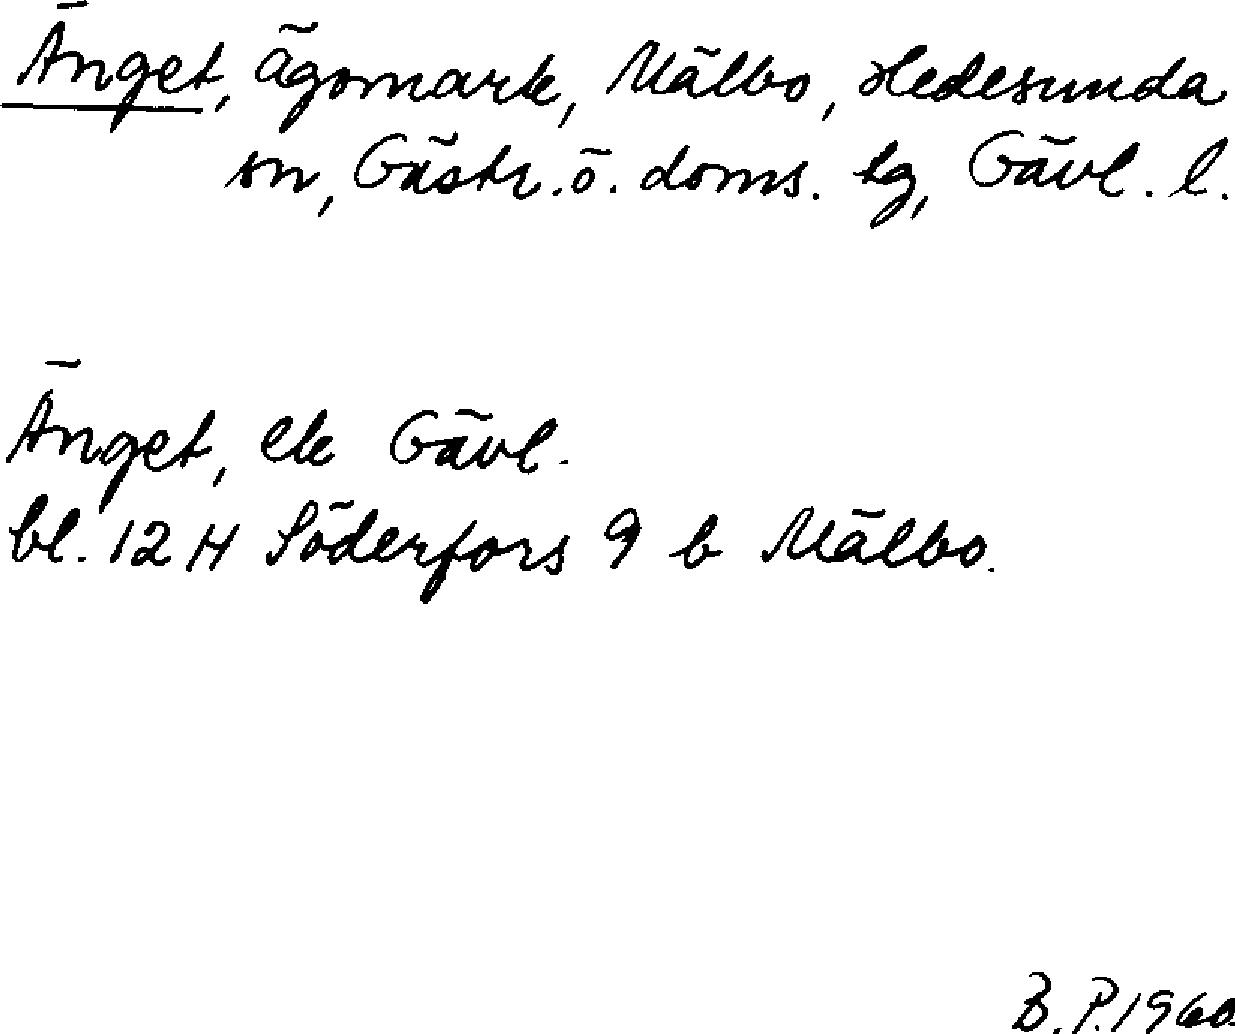 Änget, ägomark, Mälbo, Hedesunda
sn, Gästr. ö. doms. tg, Gävl. l.
Änget, ek Gävl.
bl. 12 H Söderfors 9 b Mälbo.
B. P. 1960.